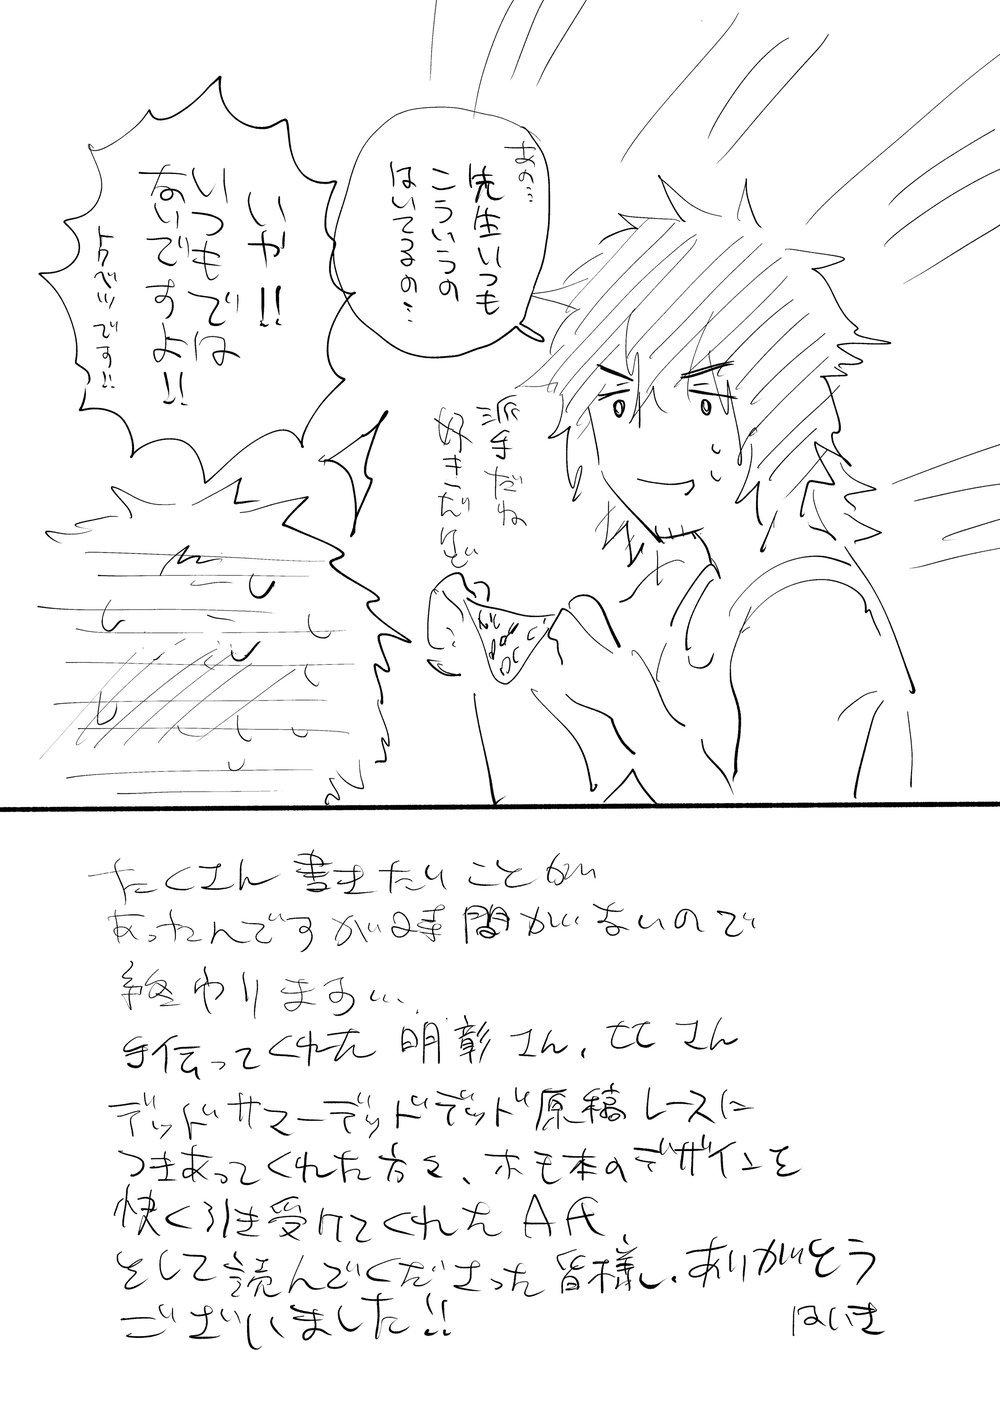 あの…
先生いつも
こういうの
はいてるの…
いや!!
いつもでは
ないですよ!!
トクベツです!!
派手だね
好きだけど
たくさん書きたいことが
あったんですが時間がないので
終わります…
手伝ってくれた明彰さん、
さん
デッドサマーデッドデッド原稿レースに
つきあってくれた方々、ホモ本のデザインを
快く引き受けてくれたAA、
そして読んでくださった皆様、ありがとう
ございました!!
はいき